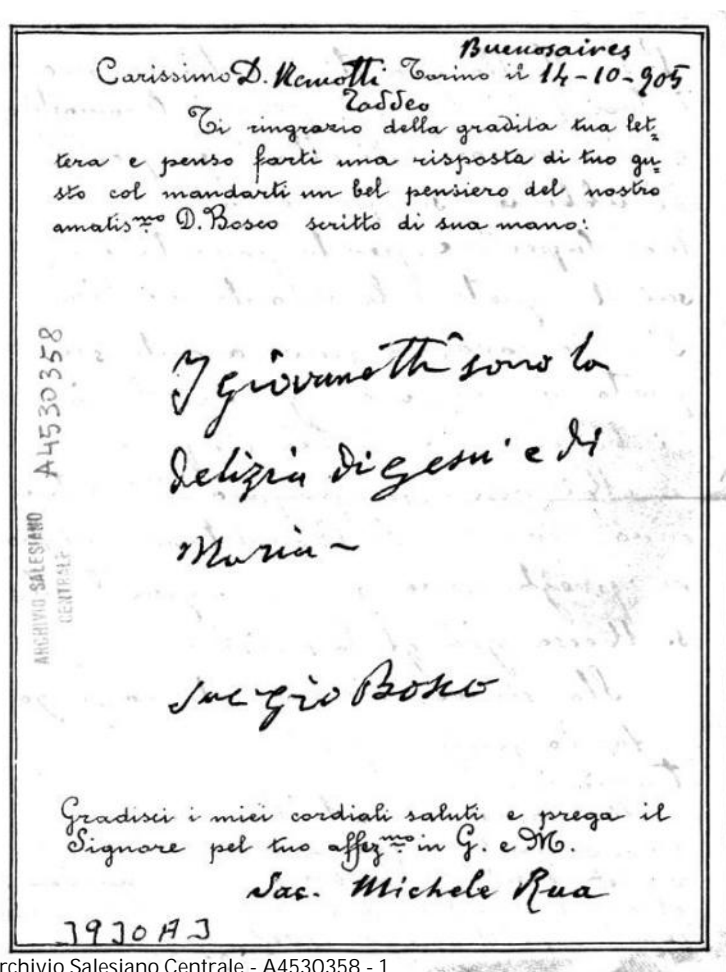 Buenosaires
Carissimo D. Remotti Torino il 14-10-905
Taddeo
Ti ringrazio della gradita tua let=
tera e penso farti una risposta di tuo gu=
sto col mandarti un bel pensiero del nostro
amatis.mo D. Bosco scritto di sua mano:
I giovanetti sono la
delizia di Gesù e di
Maria -
Sac Gio Bosco
Gradisci i miei cordiali saluti e prega il
Signore pel tuo affez.mo in G. e M.
Sac. Michele Rua
A4530358
ARCHIVIO SALESIANO
CENTRALE
3930A3
rchivio Salesiano Centrale - A4530358 - 1